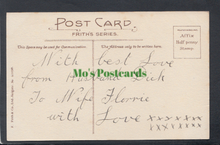 POST CARD
FRITHS SERIES.
This Space may be used for Communication.
The Address only to be written here.
Affix
Half penny
Stamp
Mo's Postcards
With best Love
from Husband Dick
To Wife Florrie
with Love xxxxxxx
xxxxxxx